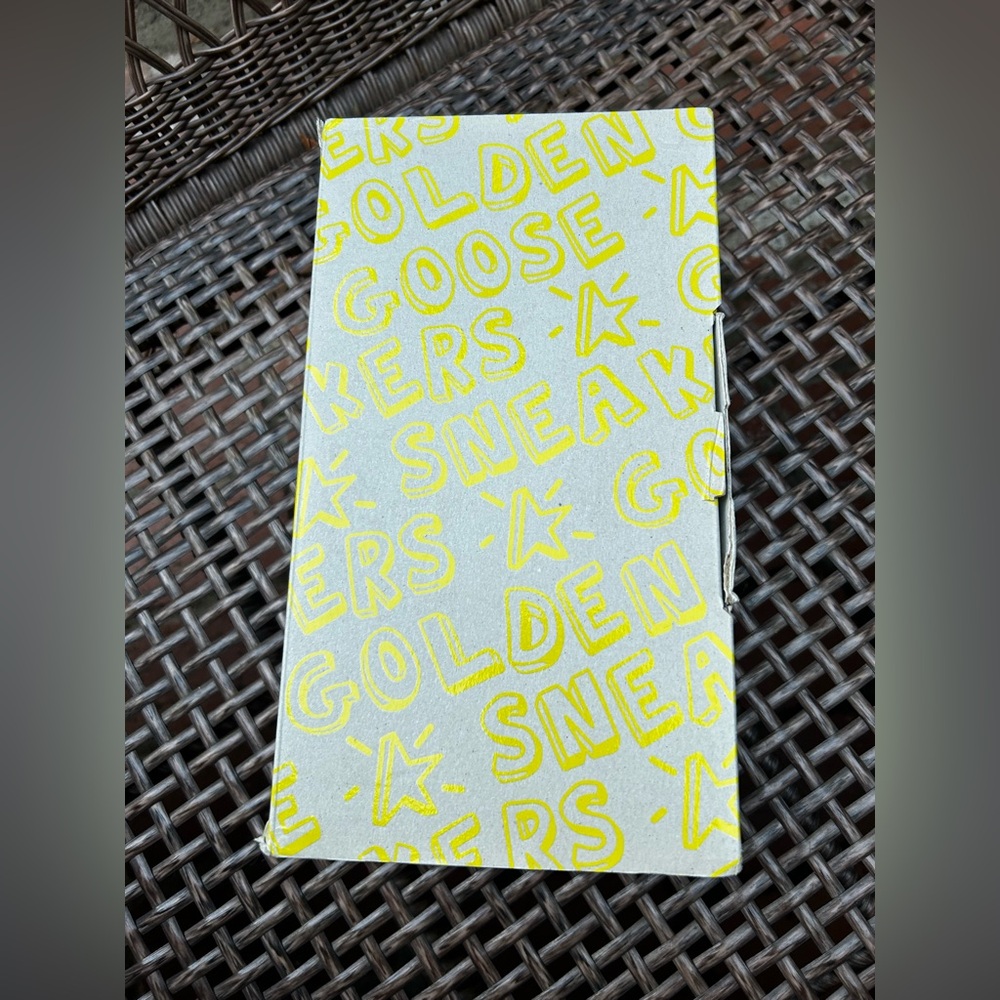 ERS
GOLDEN G
G GOOSE
KERS G
SNEAK
GO
ERS
GOLDEN
SNEA
E KERS